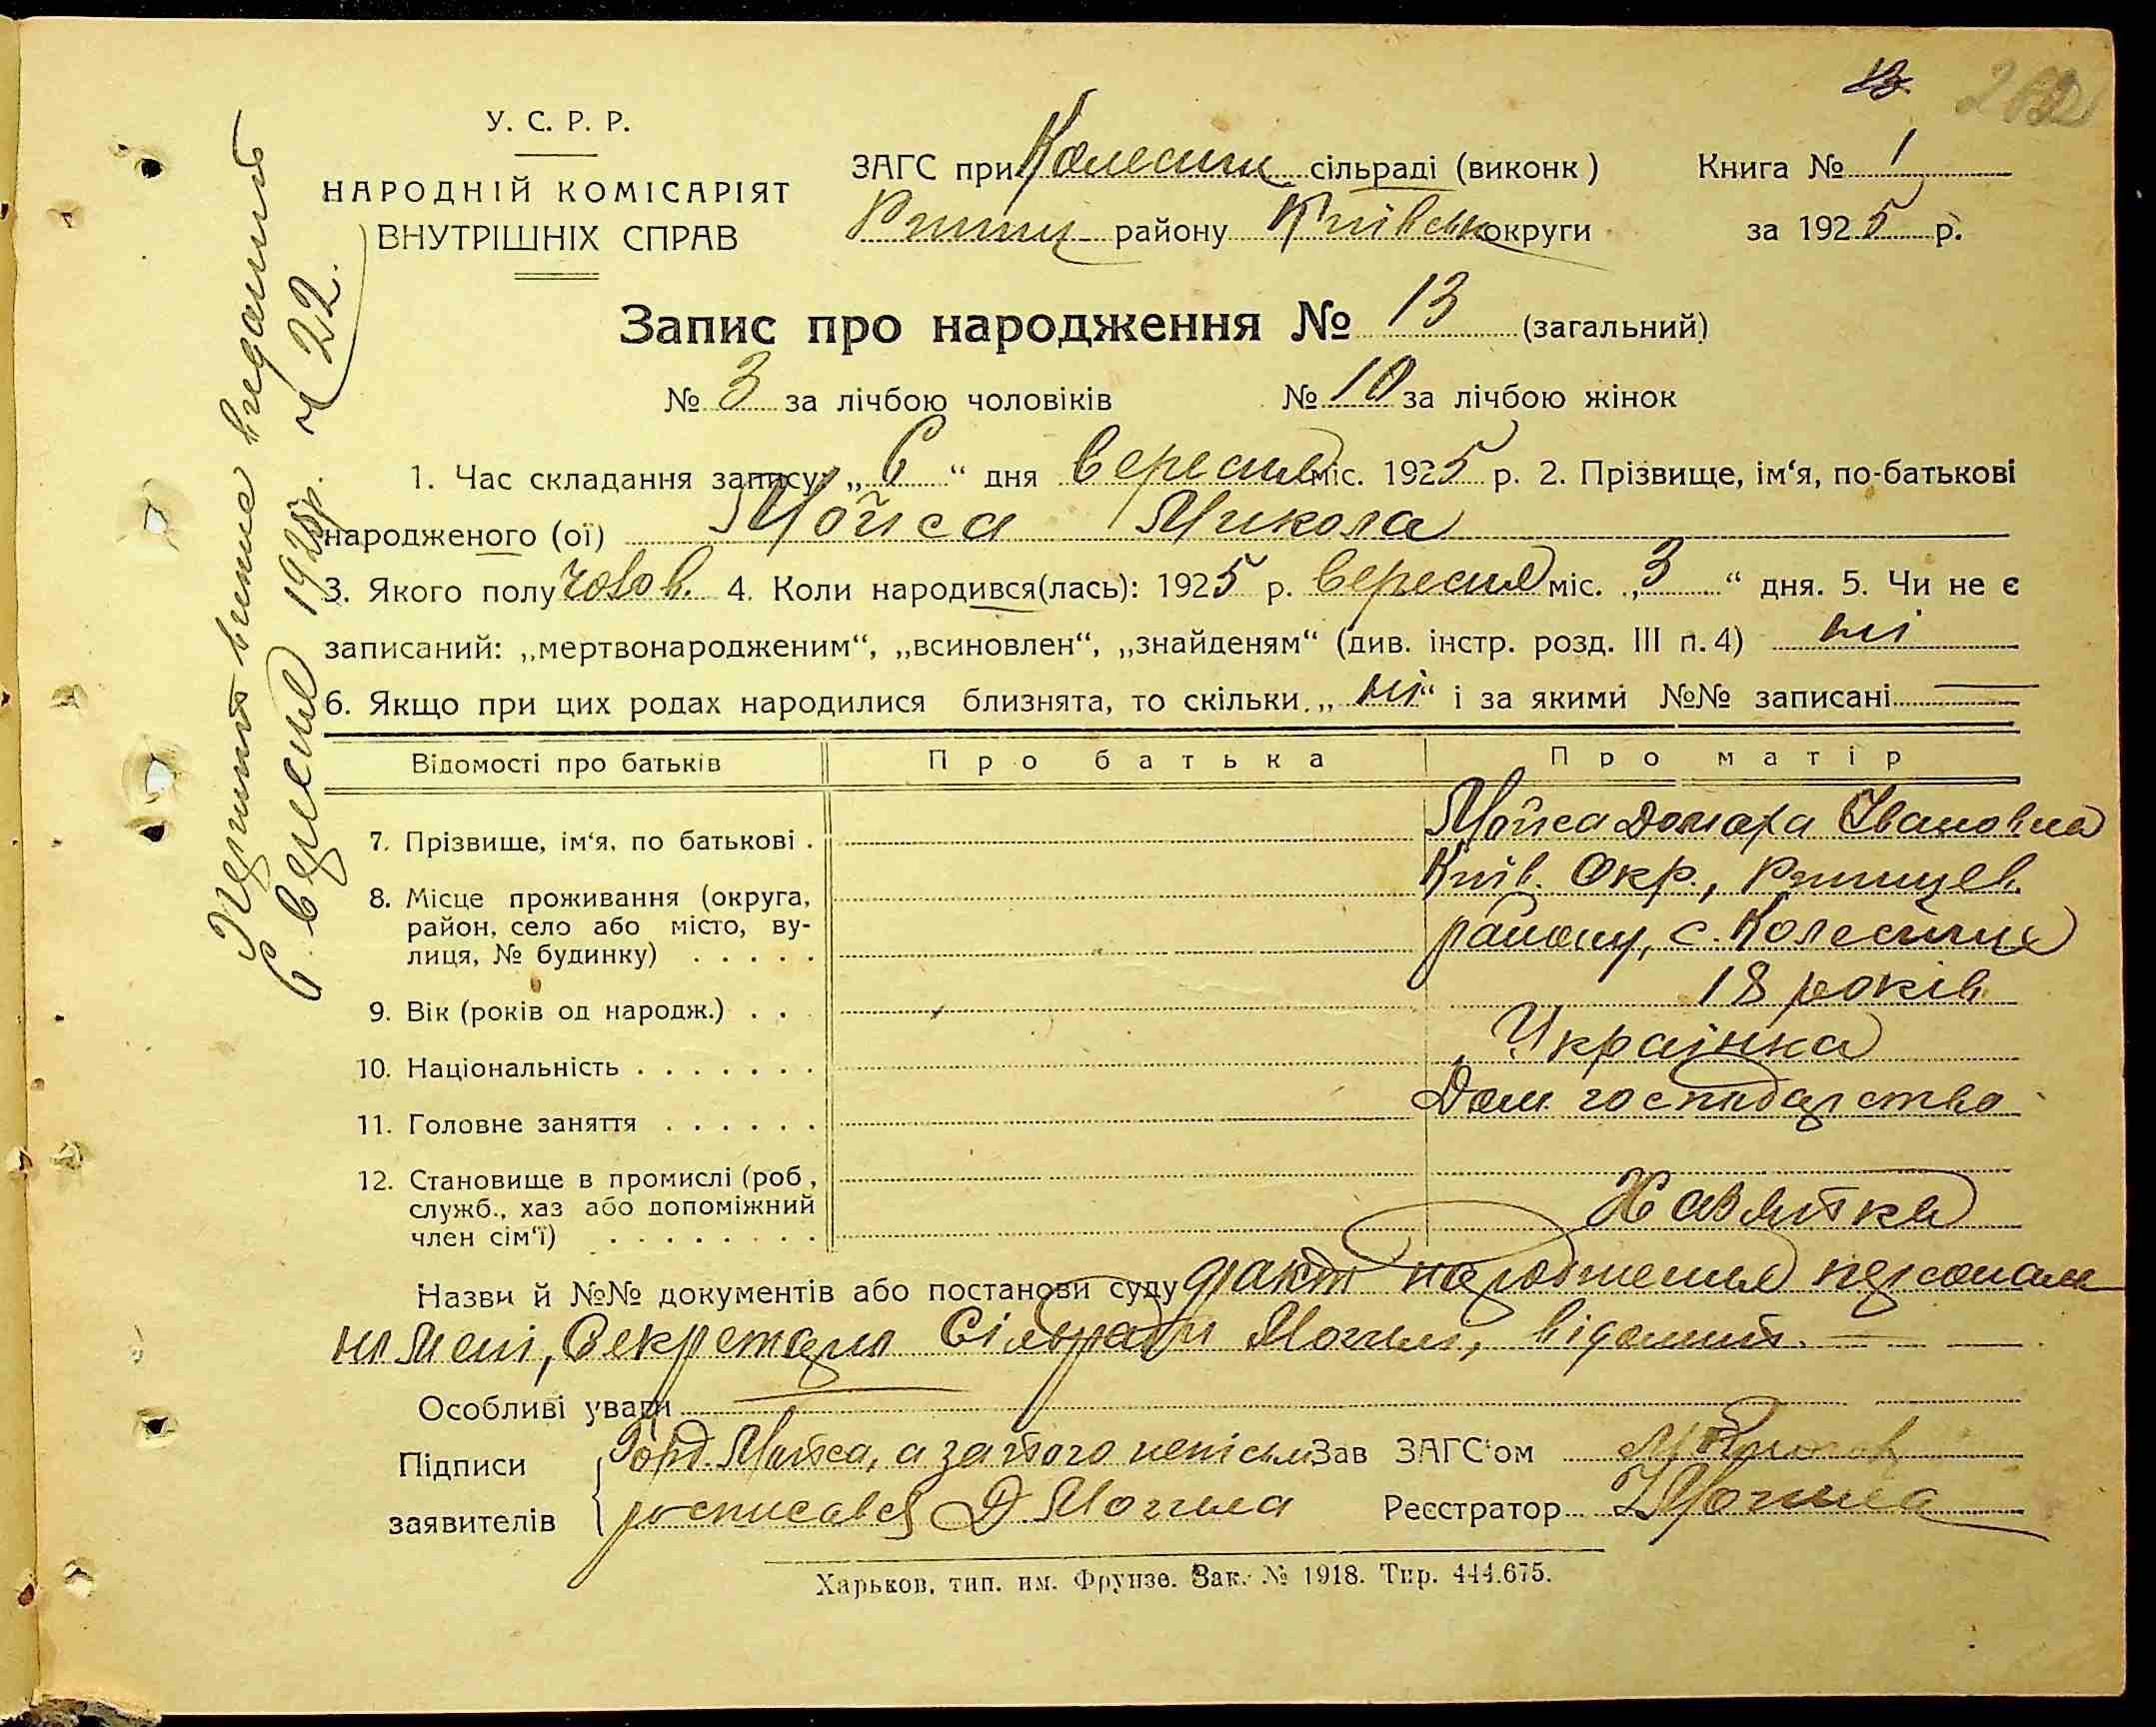 13
У. С. Р. Р.
НАРОДНІЙ КОМІСАРІЯТ
ВНУТРІШНІХ СПРАВ
ЗАГС при Колесищ сільраді (виконк)
Книга № 1
Ржищ району Київськ округи
за 1925 р.
Запис про народження № 13 (загальний)
№ 3 за лічбою чоловіків № 10 за лічбою жінок
1. Час складання запису: „6“ дня Вересня міс. 1925 р. 2. Прізвище, ім‘я, по-батькові
народженого (ої) Мойса Микола
3. Якого полу чолов. 4. Коли народився(лась): 1925 р. Вересня міс. „3“ дня. 5. Чи не є
записаний: „мертвонародженим“, „всиновлен“, „знайденям“ (див. інстр. розд. III п. 4) ні
6. Якщо при цих родах народилися близнята, то скільки „ні“ і за якими №№ записані
Відомості про батьків Про батька Про матір
7. Прізвище, ім‘я, по батькові . Мойса Домаха Івановна
8. Місце проживання (округа, Київ. Окр., Ржищев.
район, село або місто, ву- району, с. Колесище
лиця, № будинку) . . . . .
9. Вік (років од народж.) . . 18 років
10. Національність . . . . . . . Українка
11. Головне заняття . . . . . . Дом. господарство
12. Становище в промислі (роб,
служб., хаз або допоміжний Хазяйка
член сім‘ї) . . . . . . . .
Назви й №№ документів або постанови суду факт народження персональ
но мені, Секретарю Сільради Могилі, відомий.
Особливі уваги
Підписи Мойса, а за його неписьм Зав ЗАГС‘ом
заявителів росписався Д. Могила Реєстратор Могила
Харьков, тип. им. Фрунзе. Зак. № 1918. Тир. 444.675.
6 Вересня 1925р. ч 22.